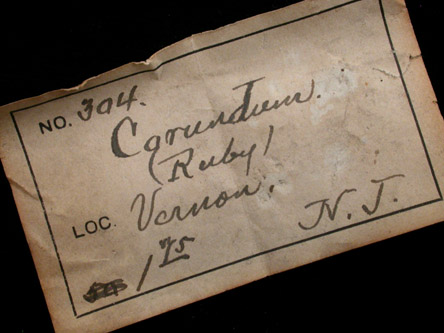 NO. 304.
Corundum.
(Ruby)
LOC. Vernon.
N. J.
1 75